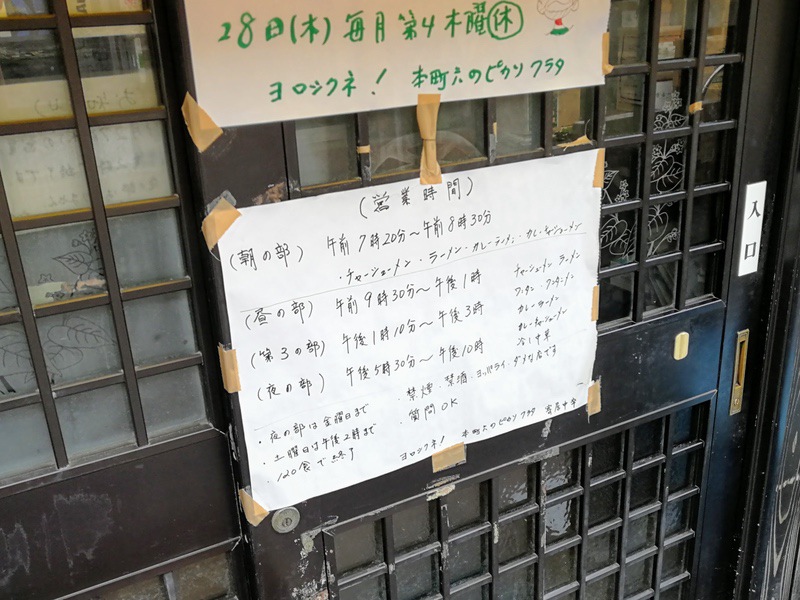 28日(木)毎月第4木曜㊡
ヨロシクネ! 本町六のピカソ フラタ
(営業時間)
(朝の部) 午前7時20分〜午前8時30分
・チャーシューメン・ラーメン・カレーラーメン・カレーチャーシューメン
(昼の部) 午前9時30分〜午後1時 チャーシューメン ラーメン
ワンタン・ワンタンメン
(第3の部) 午後1時10分〜午後3時 カレーラーメン
カレーチャーシューメン
(夜の部) 午後5時30分〜午後10時 冷し中華
・夜の部は金曜日まで ・禁煙・禁酒・ヨッパライ・ダメな店です
・土曜日は午後2時まで ・質問OK
・120食で終り
ヨロシクネ! 本町六のピカソ フラタ
入口